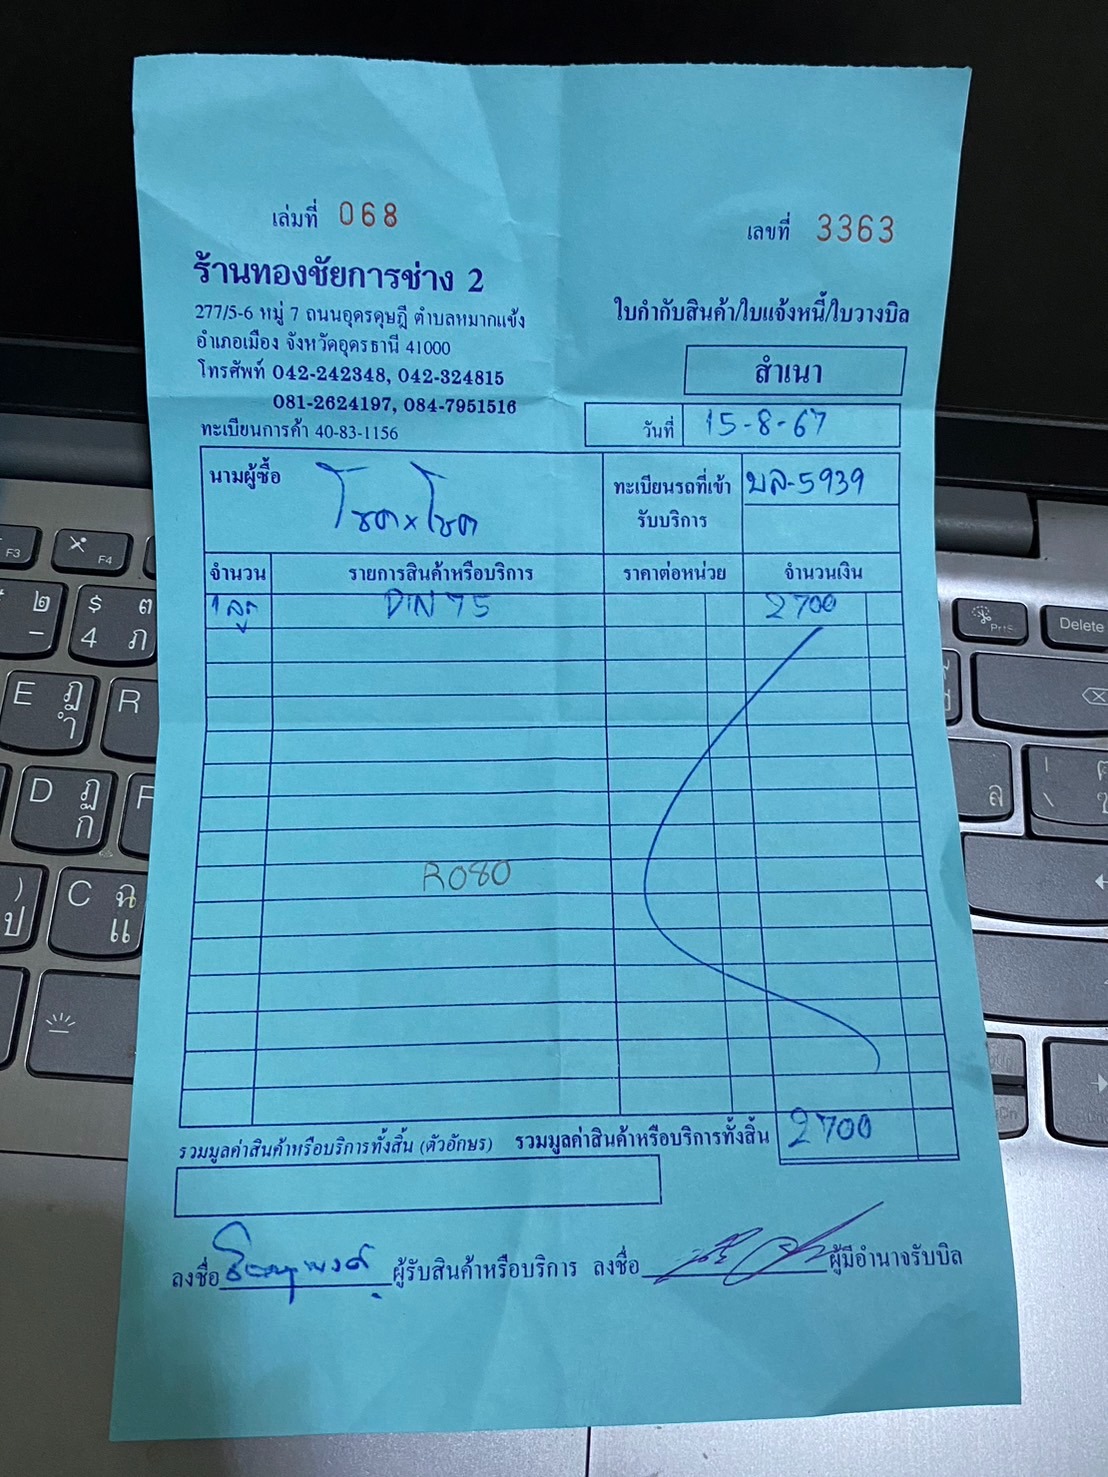 เล่มที่ 068
เลขที่ 3363
ร้านทองชัยการช่าง 2
277/5-6 หมู่ 7 ถนนอุดรดุษฎี ตำบลหมากแข้ง
อำเภอเมือง จังหวัดอุดรธานี 41000
โทรศัพท์ 042-242348, 042-324815
081-2624197, 084-7951516
ทะเบียนการค้า 40-83-1156
ใบกำกับสินค้า/ใบแจ้งหนี้/ใบวางบิล
สำเนา
วันที่ 15-8-67
นามผู้ซื้อ โชคxโชค
ทะเบียนรถที่เข้า บล-5939
รับบริการ
จำนวน รายการสินค้าหรือบริการ ราคาต่อหน่วย จำนวนเงิน
1 ลูก DIN 75 2700
R080
รวมมูลค่าสินค้าหรือบริการทั้งสิ้น (ตัวอักษร) รวมมูลค่าสินค้าหรือบริการทั้งสิ้น 2700
ลงชื่อ ผู้รับสินค้าหรือบริการ ลงชื่อ ผู้มีอำนาจรับบิล
F3
F4
๒
-
$ ๓
4 ภ
E ฎ
ำ
R
D ฏ
ก
F
)
ป
C ฉ
แ
PrtSc
Delete
ล